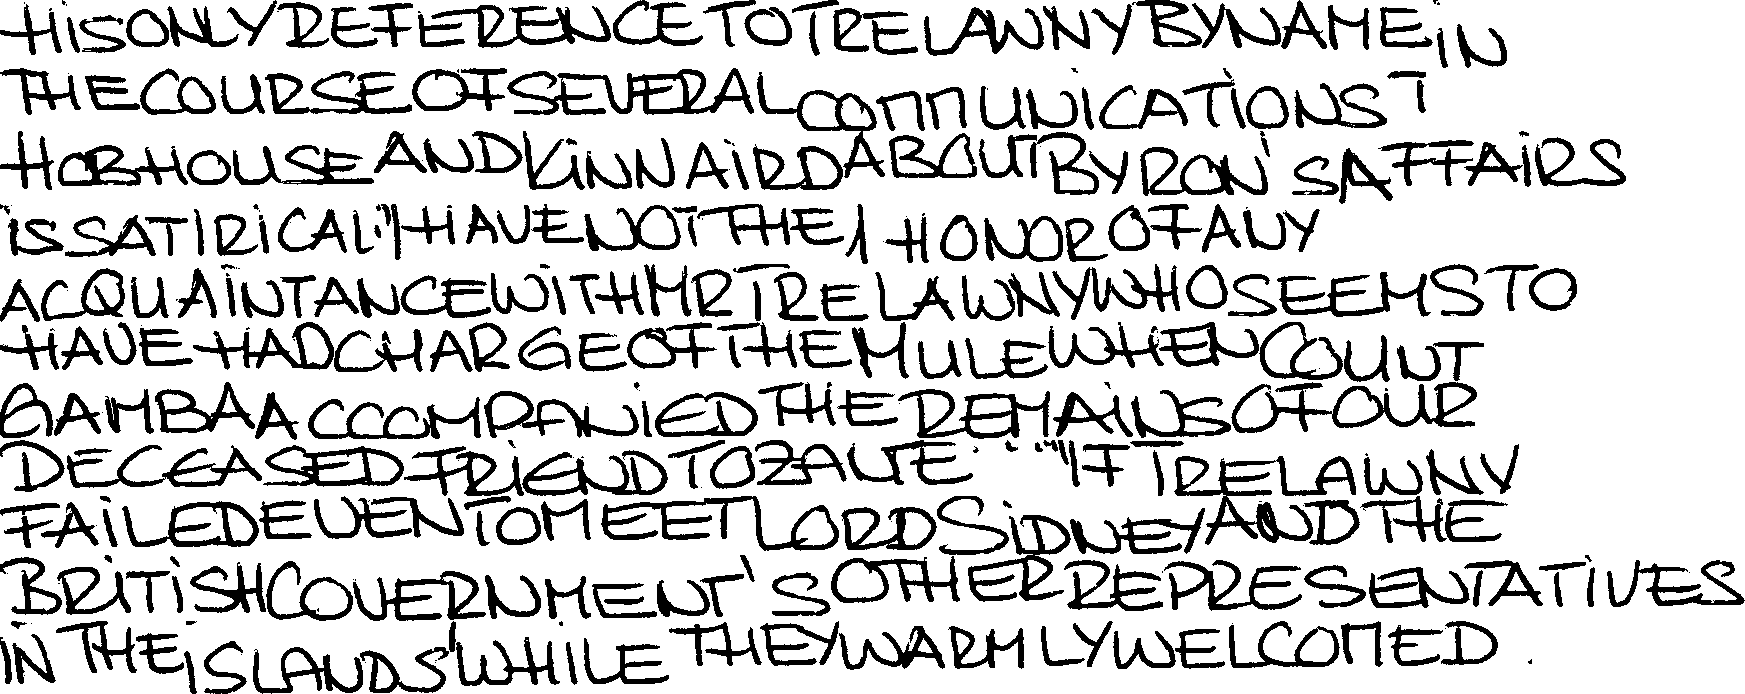 HIS ONLY REFERENCE TO TRELAWNY BY NAME IN
THE COURSE OF SEVERAL COMMUNICATIONS T
HOBHOUSE AND KINNAIRD ABOUT BYRON'S AFFAIRS
IS SATIRICAL: "I HAVE NOT THE HONOR OF ANY
ACQUAINTANCE WITH MR TRELAWNY WHO SEEMS TO
HAVE HAD CHARGE OF THE MULE WHEN COUNT
GAMBA ACCOMPANIED THE REMAINS OF OUR
DECEASED FRIEND TO ZANTE . . ." "IF TRELAWNY
FAILED EVEN TO MEET LORD SIDNEY AND THE
BRITISH GOVERNMENT'S OTHER REPRESENTATIVES
IN THE ISLANDS WHILE THEY WARMLY WELCOMED .